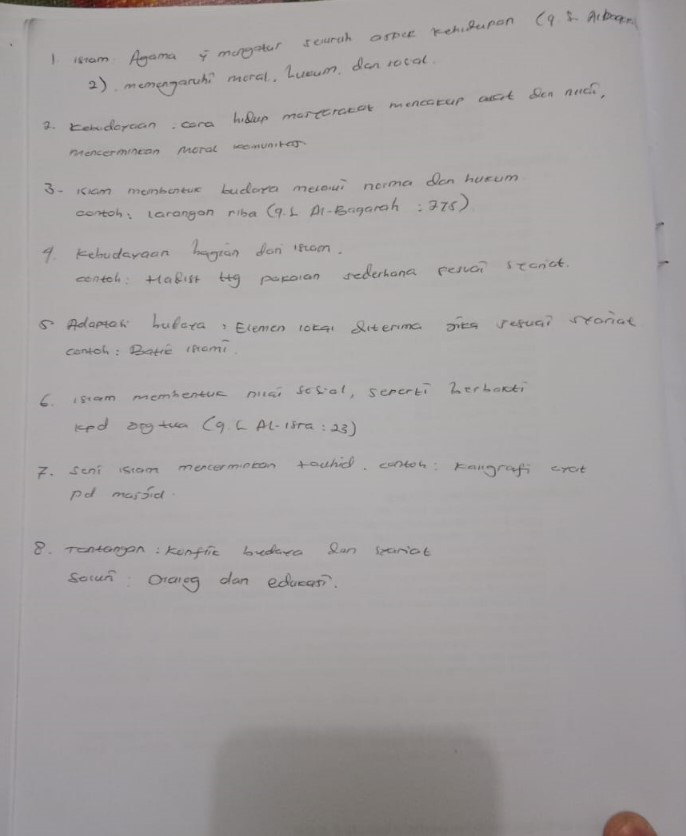 1 islam Agama yg mengatur seluruh aspek kehidupan (q.s. Al-baqara
2). memengaruhi moral, hukum, dan sosial.
2. kebudayaan : cara hidup masyarakat mencakup adat dan nilai,
mencerminkan moral komunitas.
3- islam membentuk budaya melalui norma dan hukum
contoh : larangan riba (q.s Al-Baqarah : 275)
4. kebudayaan bagian dari islam.
contoh : Hadist ttg pakaian sederhana sesuai syariat.
5 Adaptasi budaya : Elemen lokal diterima jika sesuai syariat
contoh : Batik islami.
6. islam membentuk nilai sosial, seperti berbakti
kpd org tua (q.s Al-isra : 23)
7. Seni islam mencerminkan tauhid. contoh : kaligrafi ayat
pd masjid.
8. Tantangan : konflik budaya dan syariat
Solusi : Dialog dan edukasi.